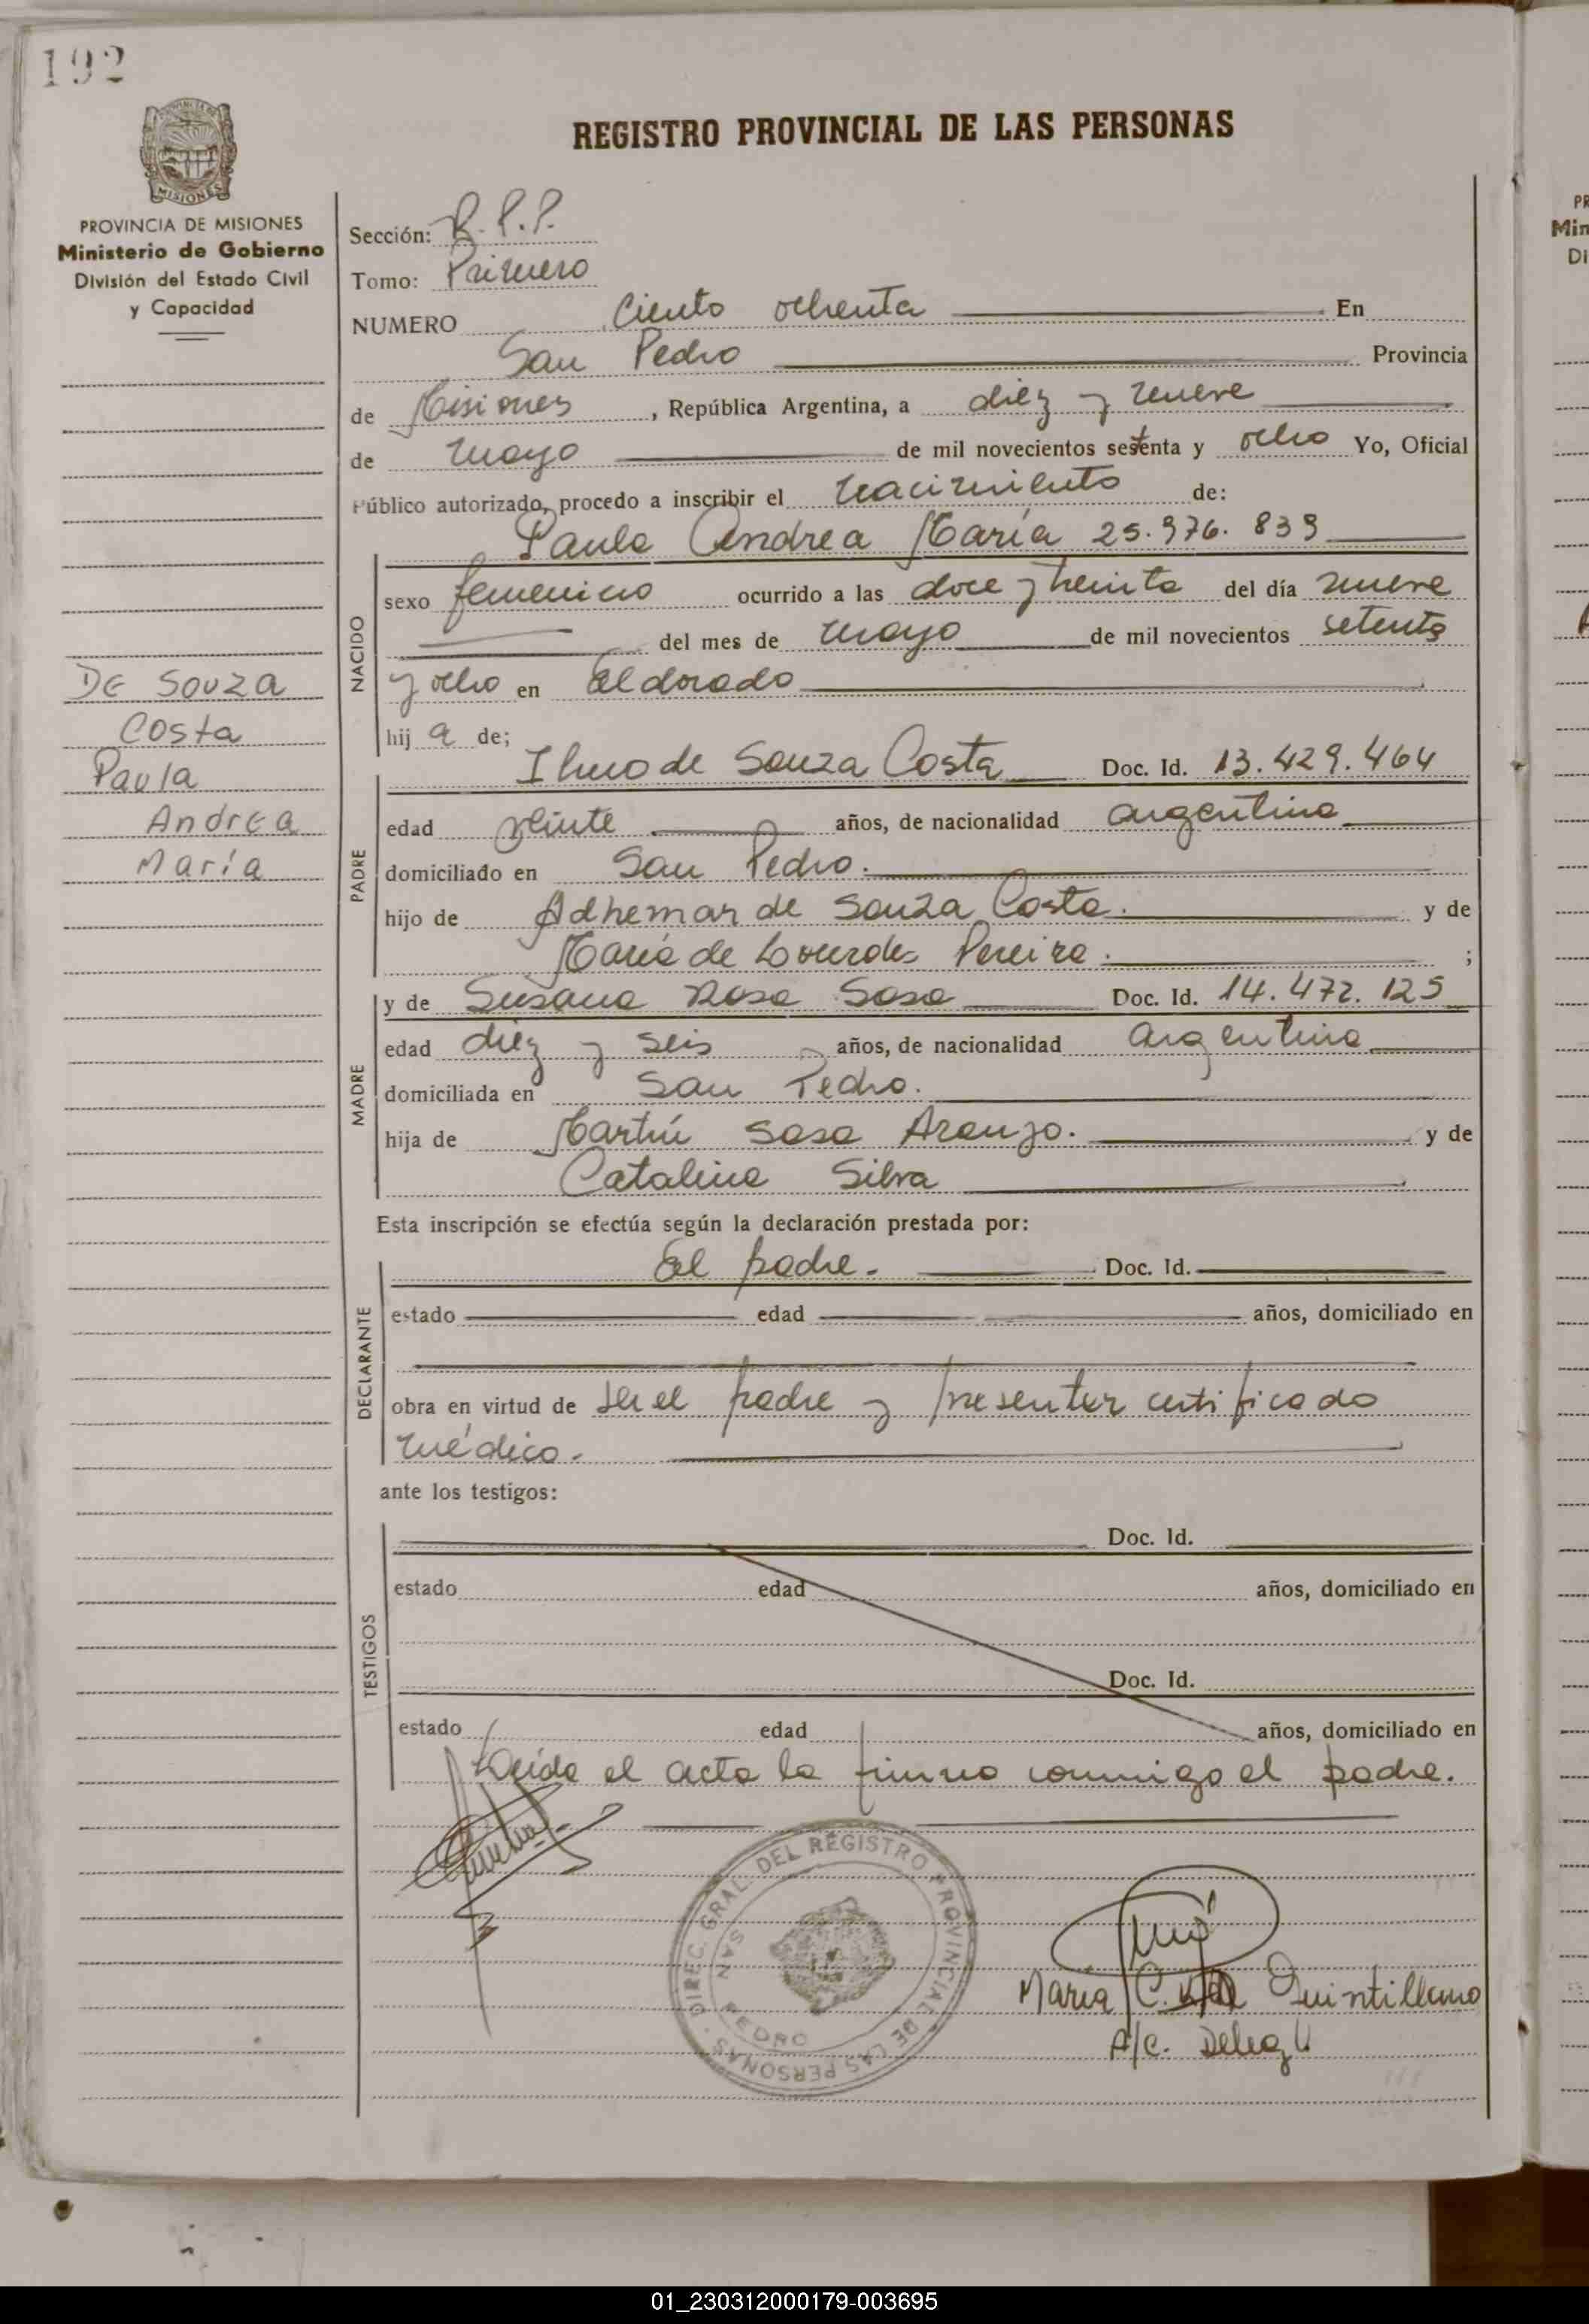 192
MISIONES
PROVINCIA DE MISIONES
Ministerio de Gobierno
División del Estado Civil
y Capacidad
REGISTRO PROVINCIAL DE LAS PERSONAS
Sección: R.P.P.
Tomo: Primero
NUMERO Ciento ochenta En
San Pedro Provincia
de Misiones, República Argentina, a diez y nueve
de mayo de mil novecientos setenta y ocho Yo, Oficial
Público autorizado, procedo a inscribir el nacimiento de:
Paula Andrea María 25.976.839
NACIDO
sexo femenino ocurrido a las doce y treinta del día nueve
del mes de mayo de mil novecientos setenta
y ocho en Eldorado
hij a de;
DE SOUZA
Costa
Paula
Andrea
María
PADRE
Ilmo de Souza Costa Doc. Id. 13.429.464
edad veinte años, de nacionalidad argentina
domiciliado en San Pedro.
hijo de Adhemar de Souza Costa. y de
María de Lourdes Pereira. ;
MADRE
y de Susana Rosa Sosa Doc. Id. 14.472.125
edad diez y seis años, de nacionalidad argentina
domiciliada en San Pedro.
hija de Martín Sosa Araujo. y de
Catalina Silva
Esta inscripción se efectúa según la declaración prestada por:
DECLARANTE
El padre. Doc. Id.
estado edad años, domiciliado en
obra en virtud de ser el padre y presentar certificado
médico.
ante los testigos:
TESTIGOS
Doc. Id.
estado edad años, domiciliado en
Doc. Id.
estado edad años, domiciliado en
Leída el acta la firma conmigo el padre.
DIREC. GRAL. DEL REGISTRO PROVINCIAL DE LAS PERSONAS
SAN PEDRO
María C. de Quintillano
A/C. Deleg
01_230312000179-003695